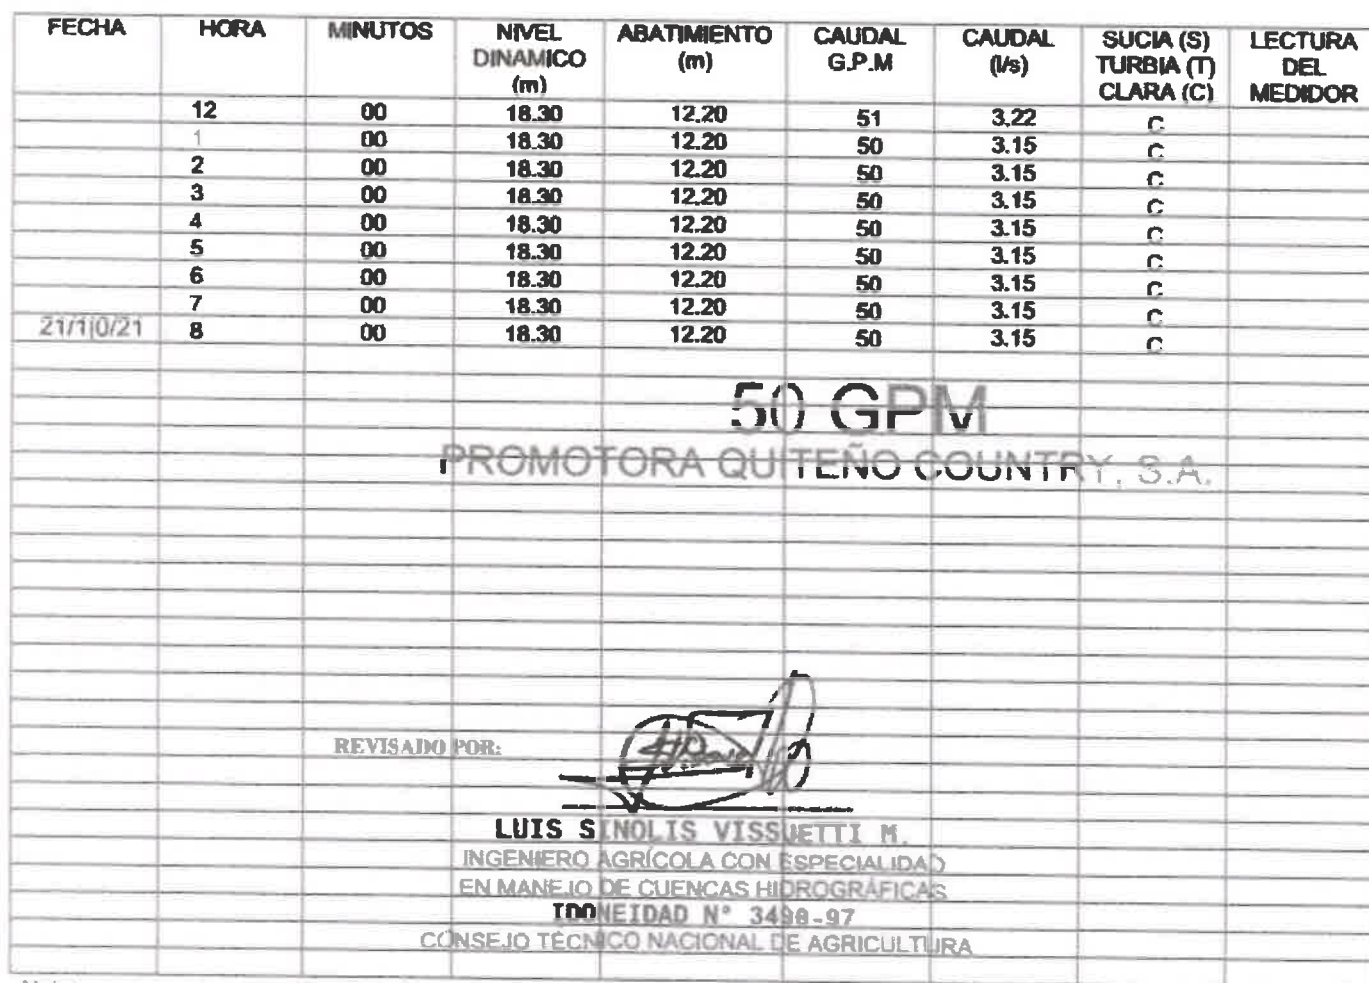 FECHA HORA MINUTOS NIVEL DINAMICO (m) ABATIMIENTO (m) CAUDAL G.P.M CAUDAL (l/s) SUCIA (S) TURBIA (T) CLARA (C) LECTURA DEL MEDIDOR
12 00 18.30 12.20 51 3,22 C
1 00 18.30 12.20 50 3.15 C
2 00 18.30 12.20 50 3.15 C
3 00 18.30 12.20 50 3.15 C
4 00 18.30 12.20 50 3.15 C
5 00 18.30 12.20 50 3.15 C
6 00 18.30 12.20 50 3.15 C
7 00 18.30 12.20 50 3.15 C
21/10/21 8 00 18.30 12.20 50 3.15 C
50 GPM
PROMOTORA QUITEÑO COUNTRY, S.A.
REVISADO POR:
LUIS SINOLIS VISSUETTI M.
INGENIERO AGRÍCOLA CON ESPECIALIDAD
EN MANEJO DE CUENCAS HIDROGRÁFICAS
IDONEIDAD N° 3498-97
CONSEJO TÉCNICO NACIONAL DE AGRICULTURA